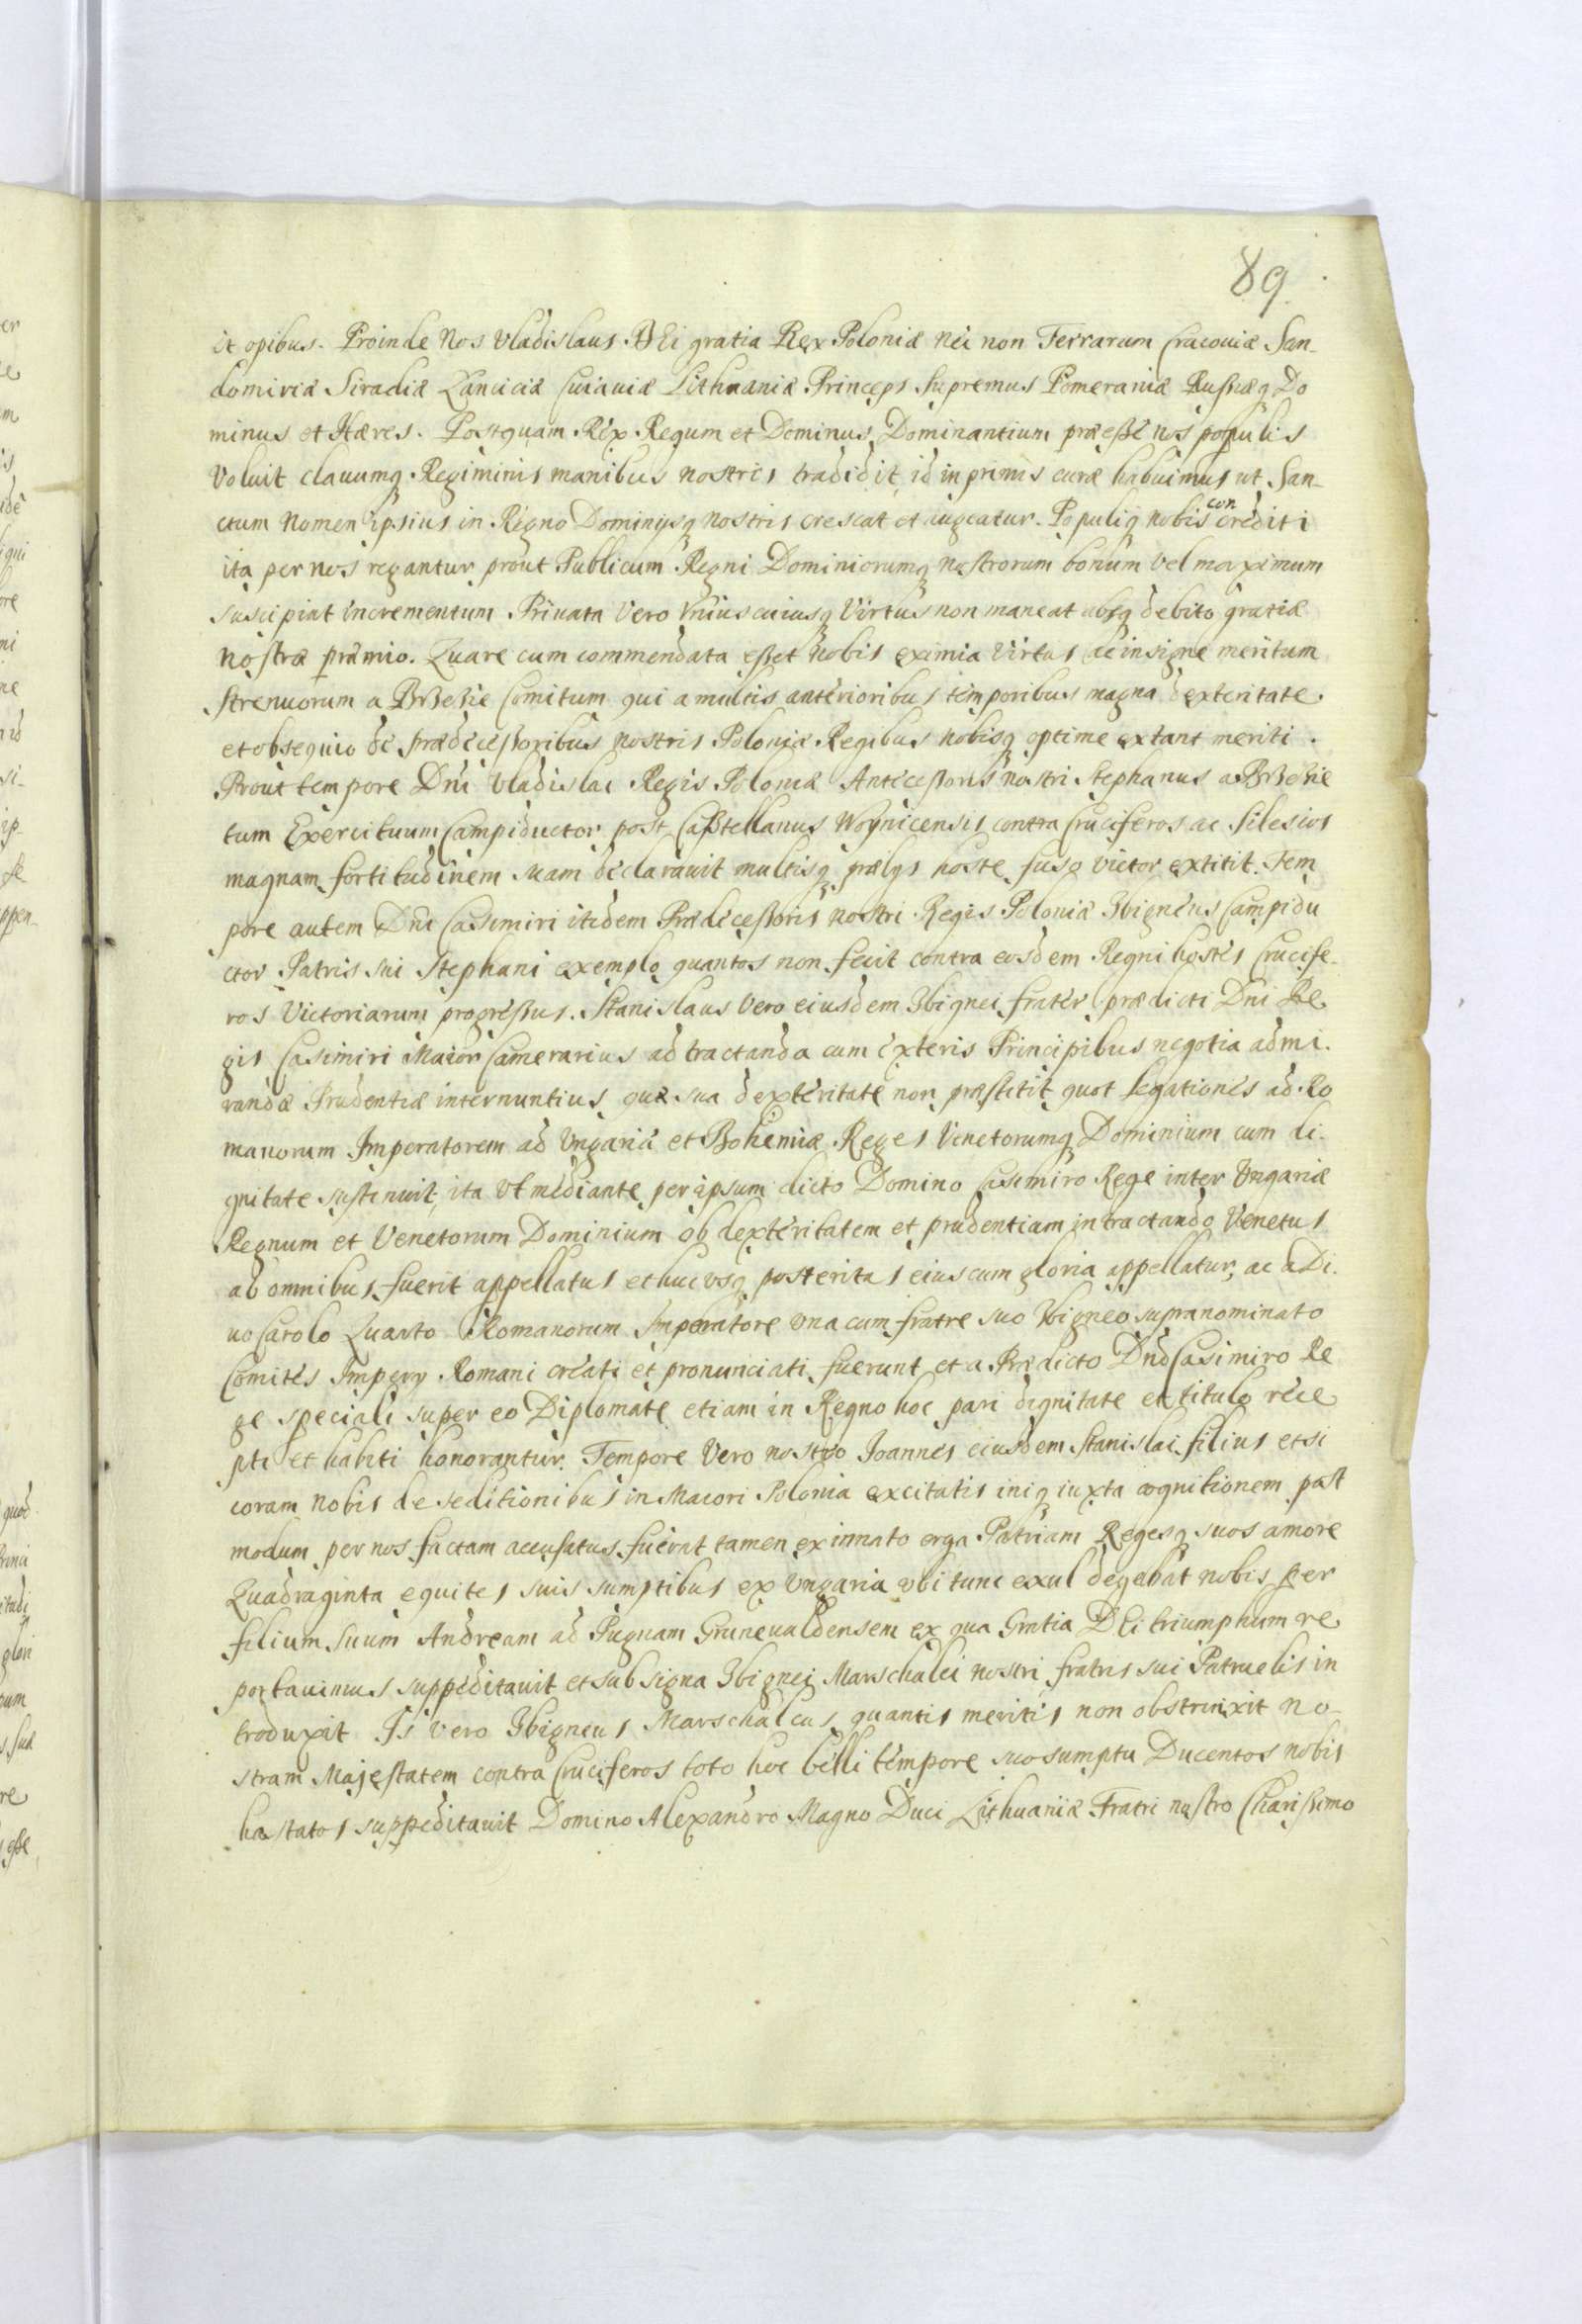 89
et opibus. Proinde Nos Vladislaus DEi gratia Rex Poloniæ nec non Terrarum Cracouiæ San-
domiriæ Siradiæ Lanciciæ Cuiauiæ Lithuaniæ Princeps Supremus Pomeraniæ Russiæq Do
minus et Hæres. Postquam Rex Regum et Dominus Dominantium præesse nos populis
voluit clauumq Regiminis manibus nostris tradidit, id in primis curæ habuimus ut San-
ctum Nomen ipsius in Regno Dominijsq nostris crescat et augeatur. Populiq nobis concrediti
ita per nos regantur prout Publicum Regni Dominiorumq nostrorum bonum vel maximum
suscipiat incrementum. Priuata vero vniuscuiusq Virtus non maneat absq debito gratiæ
nostræ præmio. Quare cum commendata esset nobis eximia Virtus ac insigne meritum
strenuorum a BrZeZie Comitum qui a multis anterioribus temporibus magna dexteritate
et obsequio de prædecessoribus nostris Poloniæ Regibus nobisq optime extant meriti.
Prout tempore Dni Vladislai Regis Poloniæ Antecessoris nostri Stephanus a BrZeZie
tum Exercituum Campiductor post Castellanus Woynicensis contra Cruciferos ac Silesios
magnam fortitudinem suam declarauit multisq prælys hoste fuso victor extitit. Tem
pore autem Dni Casimiri itidem Prædecessoris nostri Regis Poloniæ Zbigneus Campidu
ctor Patris sui Stephani exemplo quantos non fecit contra eosdem Regni hostes Crucife-
ros Victoriarum progressus. Stanislaus vero eiusdem Zbignei frater prædicti Dni Re
gis Casimiri Maior Camerarius ad tractanda cum exteris Principibus negotia admi-
randæ Prudentiæ internuntius quæ sua dexteritate non præstitit quot legationes ad Ro
manorum Imperatorem ad Vngariæ et Bohemiæ Reges Venetorumq Dominium cum di-
gnitate sustinuit, ita vt mediante per ipsum dicto Domino Casimiro Rege inter Vngariæ
Regnum et Venetorum Dominium ob dexteritatem et prudentiam in tractando Venetus
ab omnibus fuerit appellatus et huc vsq posteritas eius cum gloria appellatur, ac a Di-
uo Carolo Quarto Romanorum Imperatore vna cum fratre suo Zbigneo supranominato
Comites Impery Romani creati et pronunciati fuerunt et a Prædicto Dno Casimiro Re
ge speciali super eo Diplomate etiam in Regno hoc pari dignitate et titulo rece
pti et habiti honorantur. Tempore vero nostro Joannes eiusdem Stanislai filius etsi
coram nobis de seditionibus in Maiori Polonia excitatis iniq iuxta cognitionem post
modum per nos factam accusatus fuerat tamen ex innato erga Patriam Regesq suos amore
Quadraginta equites suis sumptibus ex Vngaria vbi tunc exul degebat nobis per
filium suum Andream ad Pugnam Grunevaldensem ex qua Gratia DEi triumphum re
portauimus suppeditauit et sub signa Zbignei Marschalci nostri fratris sui Patruelis in
troduxit Is vero Zbigneus Marschalcus quantis meritis non obstrinxit no-
stram Majestatem contra Cruciferos toto hoc belli tempore suo sumptu Ducentos nobis
hastatos suppeditauit Domino Alexandro Magno Duci Lithuaniæ Fratri nostro Charissimo